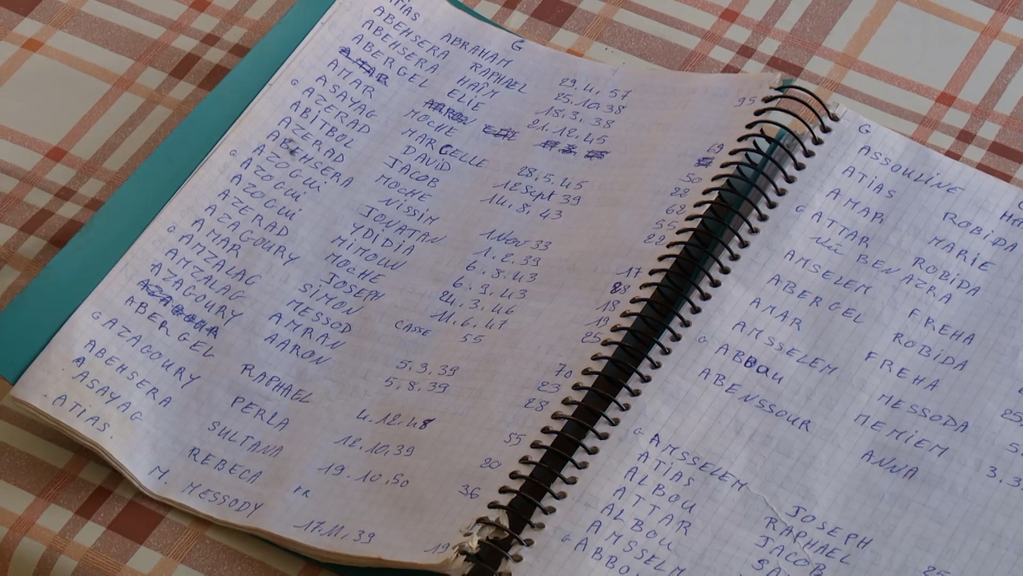 ATIAS ABRAHAM G
ABEHSERA RAPHAEL 29.4.57
ABEHSERA HAIM 25.10.38 95
ABERGEL ELIE 18.3.38
AMAR AARON 21.12.45
ASAYAG MOCHE 69
AZERAD MARCELLE 28.5.45 50
ABITBOL DAVID 12 Sept 39 28
AZERAD JACOB 14.8.43 62
ABEHSERA MOCHE 55
G AZOGUI NISSIM 1 Nov 33 22
AZOGUI JONATAN 1.2.39
AZOGUI YDIDIA 6.8.43 17
AZERAD MIMOUN 6.3.43
AZAGOURY MOCHE 24.3.46 18
G AMAR JOSEPH 11.6.47 19
AMZALAG SIMON CASE 55 25
AMZALAG MESSOD
AZAGOURY AMRAN 5.3.39 70
ABERGEL AARON 5.8.39 23
28
G AZAGOURY RAPHAEL 4.12.48
ABEHSERA PERLA 12.10.39 55
ASAYAG SULTANA 19.10.50 20
ATIAS REBECA 36
M. MESSODY 17.11.39 19
G
ASSOULINE
ATIAS ROBIDA
AMAR MARIE
G ATTAR ROBIDA
BENAZRA
AMSELEM FREHA
ABERGEL ROBIDA
AMAR FREHA
AMSSELEM MESSODA
G ABBOU MEMIEM
ABENSSOUR ANNA
G AMSSELEM JOSEPH
ATIAS RAPHAEL
ALBOU JACOB
ATTAR
ALBOU
AMSSELM
G ABBO